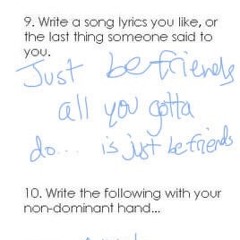 9. Write a song lyrics you like, or
the last thing someone said to
you.
Just be friends
all you gotta
do... is just be friends
10. Write the following with your
non-dominant hand...